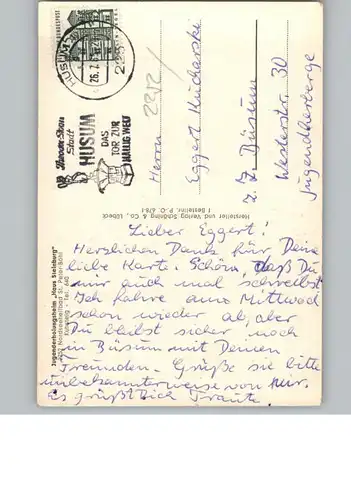 HUSUM
26.7.
225
Theodor-Storm
Stadt
HUSUM
DAS
TOR ZUR
HALLIG WELT
2252
Herrn
Eggert Kucharski
z. Z. Büsum
Westerstr. 30
Jugendherberge
Hersteller und Verlag Schöning & Co., Lübeck
Jugenderholungsheim „Haus Steinburg"
2252 Nordseeheilbad St. Peter-Böhl
Lieber Eggert!
Herzlichen Dank für Deine
liebe Karte. Schön, daß Du
mir auch mal schreibst
Ich fahre am Mittwoch
schon wieder ab, aber
Du bleibst sicher noch
in Büsum mit Deinen
Freunden. Grüße sie bitte
unbekannterweise von mir.
Es grüßt Dich Traute.